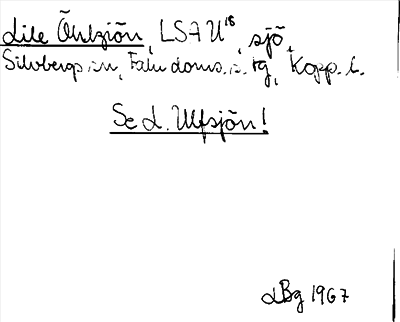 Lile Öhlziön, LSA U18, sjö,
Silvbergs sn, Falu doms. n. tg, Kopp. l.
Se L. Ulfsjön!
LBg 1967